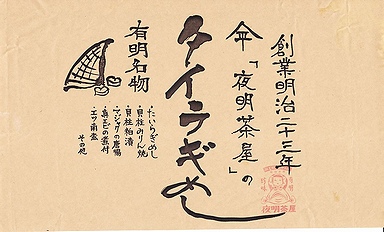 創業明治二十三年
夜明茶屋」の
タイラギめし
有明名物
・たいらぎめし
・貝柱みりん焼
・貝柱粕漬
・マジャクの唐揚
・エツ南蛮
その他
夜明茶屋